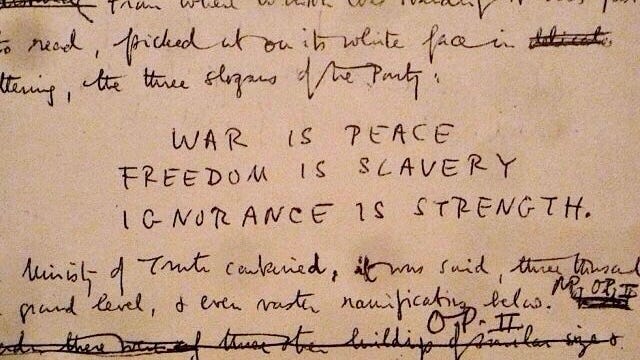 from where Winston was standing it was just
to read, picked out on its white face in delicate
ttering, the three slogans of the Party:
WAR IS PEACE
FREEDOM IS SLAVERY
IGNORANCE IS STRENGTH.
Ministry of Truth contained, it was said, three thousand
ground level, & even vaster ramifications below.
there were three other buildings of similar size &